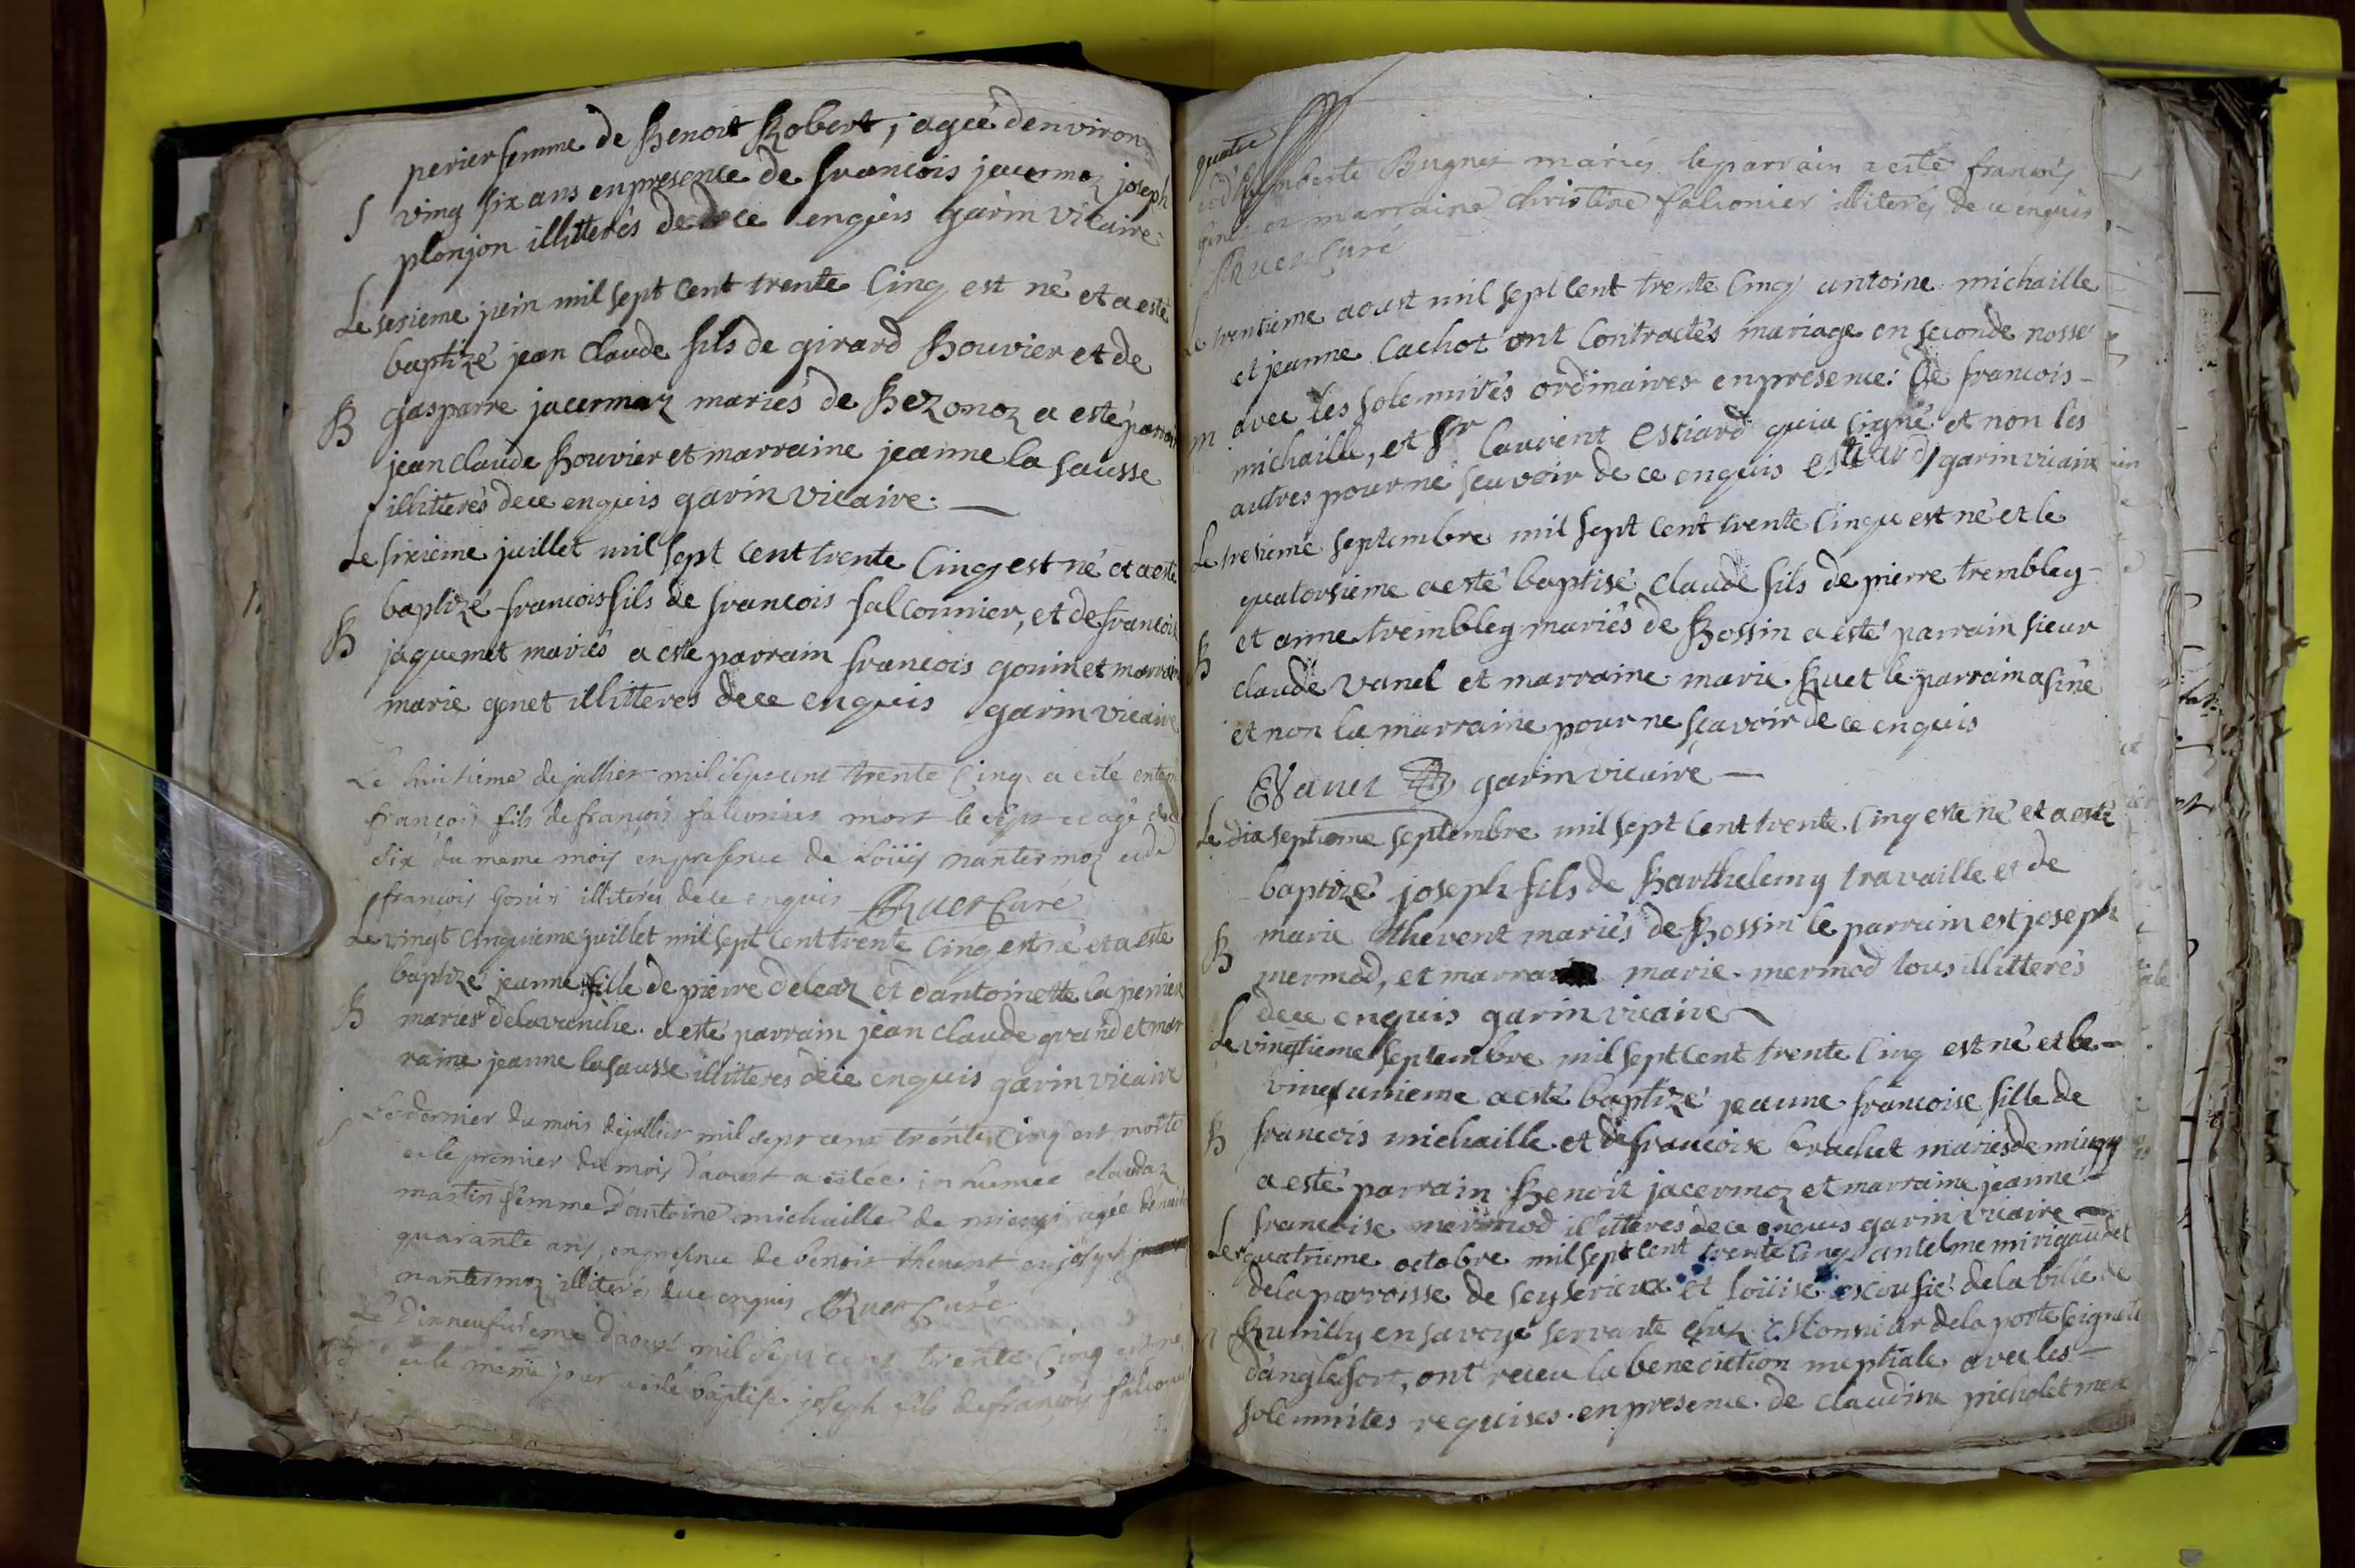 perier femme de Benoit Robert, agée denviron
S ving six ans enpresence de francois jacermoz joseph
plonjon illitterés de ce enquis garin vicaire
Le sesieme juin mil sept cent trente cinq est né et a esté
baptizé jean claude fils de girard Bouvier et de
B gasparre jacermoz mariés de Bezonoz a esté parrain
jean claude Bouvier et marraine jeanne la sausse
illitterés dece enquis garin vicaire.
Le sixieme juillet mil sept cent trente cinq est né et a esté
baptizé francois fils de francois falconnier, et de francoise
B jaquemet mariés a esté parrain francois gonin et marraine
marie genet illitteres dece enquis garin vicaire
Le huitieme de jullier mil sept cent trente cinq a esté enterré
françois fils de françois falconier mort le sept et agé
six du meme mois en presence de Loüis nantermoz et de
françois gonin illiterés de ce enquis Buer Curé
Le vingt cinquieme juillet mil sept cent trente cinq est né et a esté
baptizé jeanne fille de pierre deleaz et dantoinette la perrier
B mariés delavanche a esté parrain jean claude grand et mar
raine jeanne la sausse illitteres dece enquis garin vicaire
Le dernier du mois de jullier mil sept cent trente cinq est morte
S et le premier du mois d'aoust a estée inhumée claudaz
martin femme d'antoine michaille de mieugi agée de
quarante ans, en presence de benoit thevent et joseph
nantermoz illiterés de ce enquis Buer Curé
Le dixneufvieme d'aoust mil sept cent trente cinq est né
et le meme jour a esté baptisé joseph fils de françois falconier
quatre
et d'humberte Bugnet mariés le parrain a esté françois
genet et marraine christine falconier illiterés de ce enquis
Buer Curé
Le trentieme aoust mil sept cent trente cinq antoine michaille
et jeanne cachot ont contractés mariage en seconde nosse
m avec les solemnités ordinaires enpresence de francois
michaille, et Sr laurent Estiard qui a signé et non les
autres pour ne scavoir de ce enquis estiard garin vicaire
Le tresieme septembre mil sept cent trente cinqu est né et le
quatorsieme a esté baptisé claude fils de pierre trembley
B et anne trembley mariés de Bossin a esté parrain sieur
claude vanel et marraine marie Buet le parrain a siné
et non la marraine pour ne scavoir de ce enquis
CVanel garin vicaire
Le dix septieme septembre mil sept cent trente cinq este né et a esté
baptizé joseph fils de Barthelemy travaille et de
B marie thevent mariés de Bossin le parrain est joseph
mermod, et marraine marie mermod tous illitterés
dece enquis garin vicaire
Le vingtieme septembre mil sept cent trente cinq est né et le
vingt unieme a esté baptizé jeanne francoise fille de
B francois michaille et de francoise brachet mariés de miugy
a esté parrain Benoit jacermoz et marraine jeanne
francoise mermod illitteres dece enquis garin vicaire
Le quatrieme octobre mil sept cent trente cinq antelme mirigaudet
dela parroisse de seyserieux et loüise escousie dela ville de
m Rumilly en savoye servante chez Monsieur dela porte seigneur
danglefort, ont receu la benediction nuptiale avec les
solemnites requises en presence de claudine picholet mere